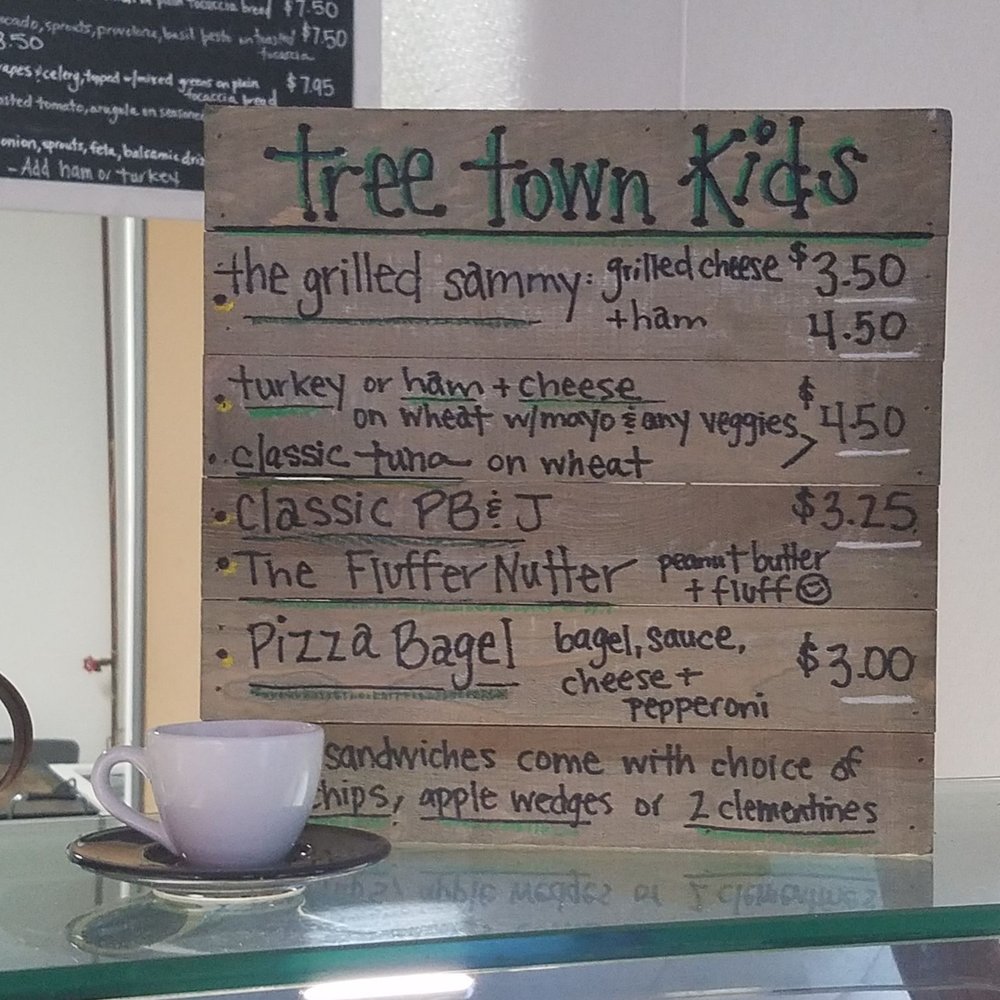 focaccia bread $7.50
sprouts, provolone, basil pesto on toasted $7.50
focaccia
8.50
celery, topped w/mixed greens on plain $7.95
focaccia bread
tomato, arugula on seasoned
onion, sprouts, feta, balsamic
- Add ham or turkey
tree town Kids
• the grilled sammy: grilled cheese $3.50
+ham 4.50
• turkey or ham + cheese
on wheat w/mayo & any veggies $4.50
• classic tuna on wheat
• Classic PB & J $3.25
• The Fluffer Nutter peanut butter
+ fluff
• Pizza Bagel bagel, sauce, $3.00
cheese +
pepperoni
sandwiches come with choice of
chips, apple wedges or 2 clementines